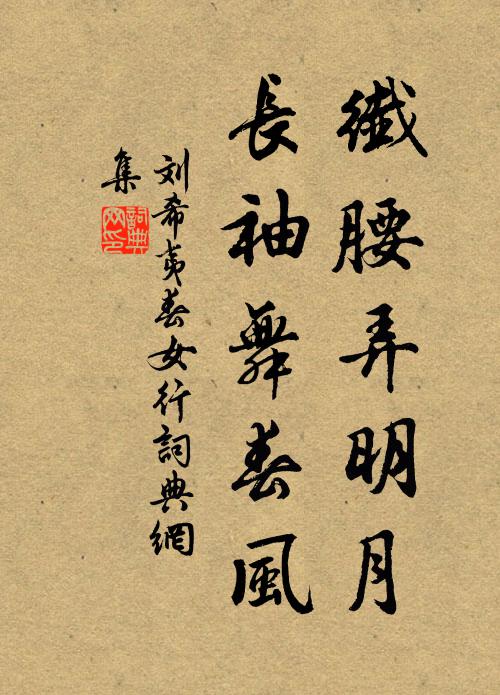 纖腰弄明月
長袖舞春風
刘希夷春女行詞典網
集
詞典
网印